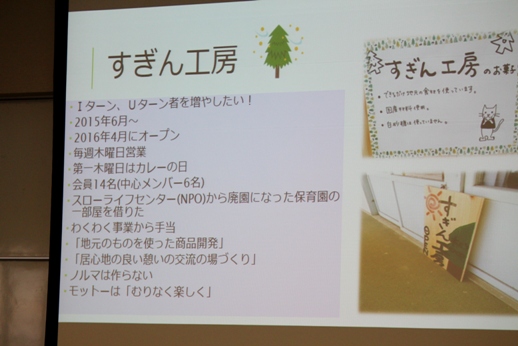 すぎん工房
・Iターン、Uターン者を増やしたい！
・2015年6月～
・2016年4月にオープン
・毎週木曜日営業
・第一木曜日はカレーの日
・会員14名(中心メンバー6名)
・スローライフセンター(NPO)から廃園になった保育園の
一部屋を借りた
・わくわく事業から手当
・「地元のものを使った商品開発」
・「居心地の良い憩いの交流の場づくり」
・ノルマは作らない
・モットーは「むりなく楽しく」
すぎん工房のお菓子
・できるだけ地元の食材を使っています。
・国産材料使用。
・白砂糖は使っていません。
すぎん工房